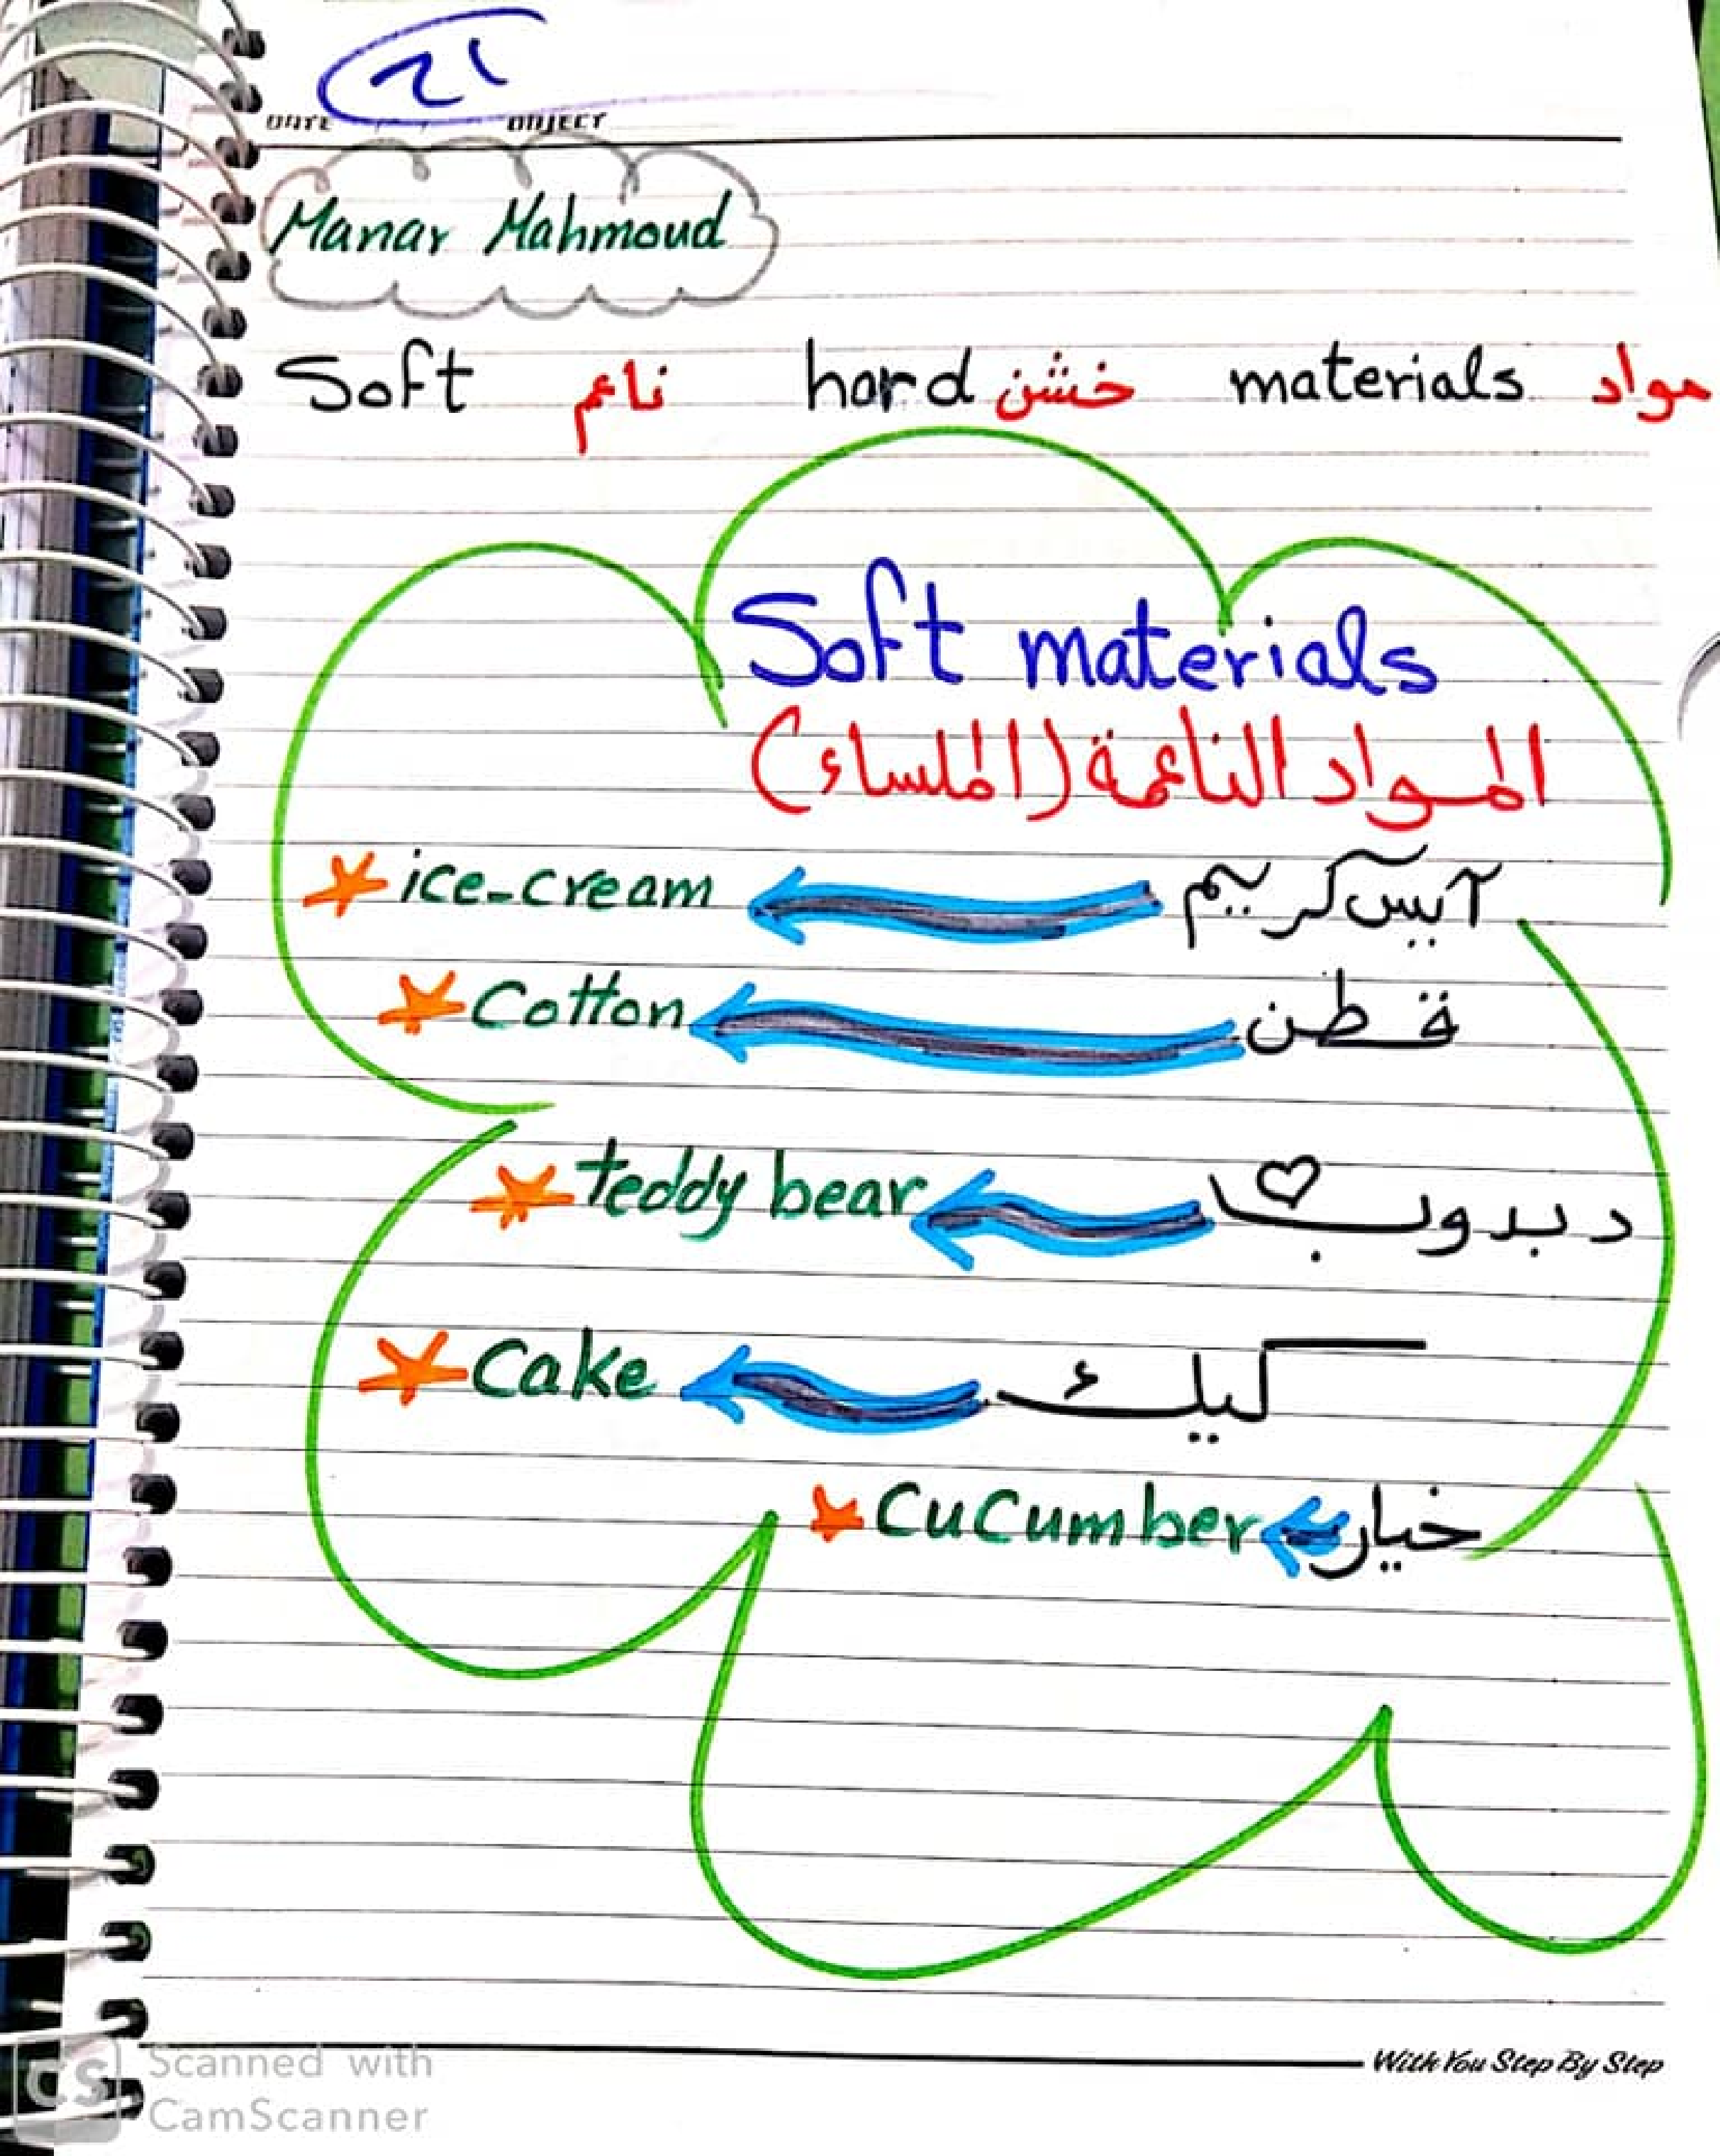 21
DATE / / OBJECT
Manar Mahmoud
Soft ناعم hard خشن materials مواد
Soft materials
المواد الناعمة (الملساء)
ice-cream آيس كريم
Cotton قطن
teddy bear دبدوب
Cake كيك
CuCumber خيار
With You Step By Step
CS Scanned with
CamScanner